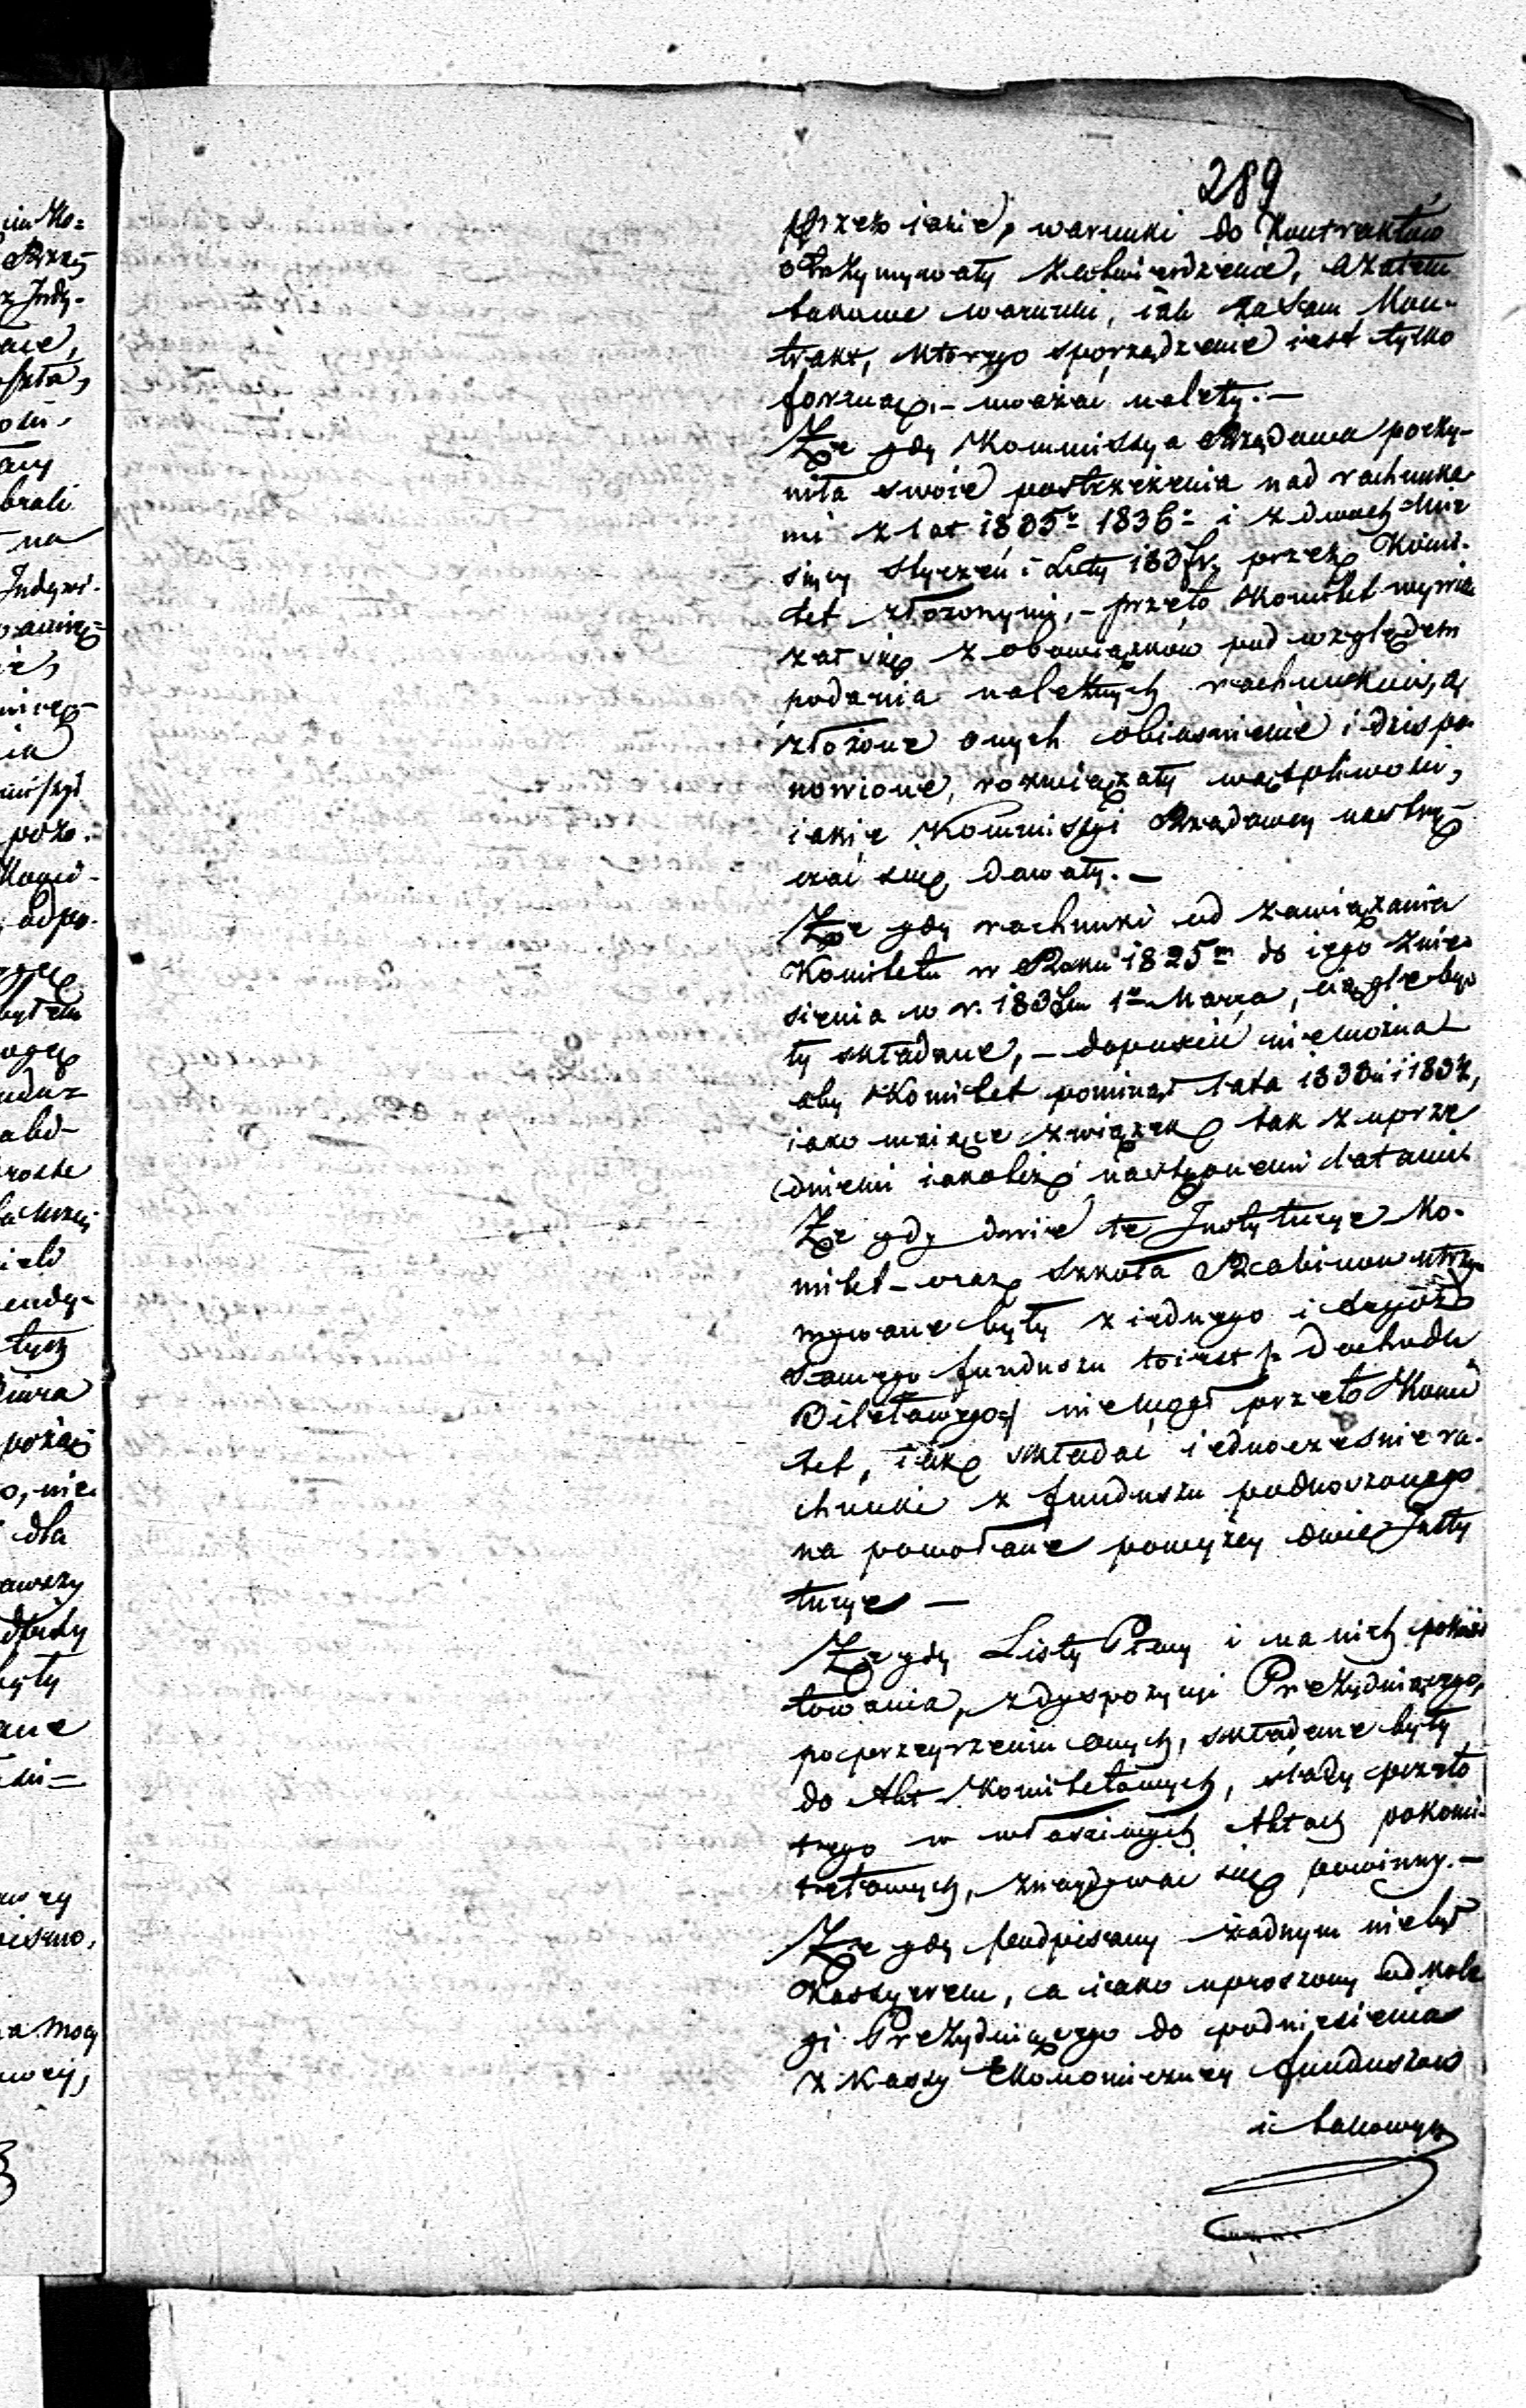 289
przez iakie, warunki do Kontraktów
otrzymywały zatwierdzenie, azatem
takowe warunki, iak zasam Kon-
trakt, którego sporządzenie iest tylko
formą, – uważać należy. –
Że gdy Kommissya Rządowa poczy-
niła swoie postrzeżenia nad rachunka
mi z lat 1835r 1836r i z dwóch Mie
sięcy Styczeń i Luty 1837r, przez Komi-
tet złożonymi, – przeto Komitet wywią
zał się z obowiązków pod względem
podania należnych rachunków, a
złożone onych obiaśnienie i dziś po
nowione, rozwiązały wątpliwości,
iakie Kommissyi Rządowey nastrę-
czać się dawały. –
Że gdy rachunki od zawiązania
Komitetu w Roku 1825m do iego znie-
sienia w r. 1837m 1o Marca, ciągle by
ły składane, – dopuścić niemożna
aby Komitet pominął lata 1833 i 1834,
iako maiące związek tak z uprze
dniemi iakoliż następnemi latami
Że gdy dwie te Instytucye Ko-
mitet – oraz Szkoła Rabinow utrzy-
mywane były z iednego i tegoż
samego funduszu toiest z Dochodu
Biletowego, niemógł przeto Komi
tet, iak składać iednocześnie ra-
chunki z funduszu podnoszonego
na powołane powyżey dwie Insty
tucye –
Że gdy Listy Płacy i na nich pokwi
towania, z dyspozycyi Prezyduiącego,
po przeyrzeniu onych, składane były
do Akt Komitetowych, ślady przeto
tego w właściwych Aktach pokomi-
tetowych, znaydować się powinny. –
Że gdy podpisany żadnym niebył
Kassyerem, a iako uproszony od kole
gi Prezyduiącego do podniesienia
z Kassy Ekonomiczney funduszów
i takowych